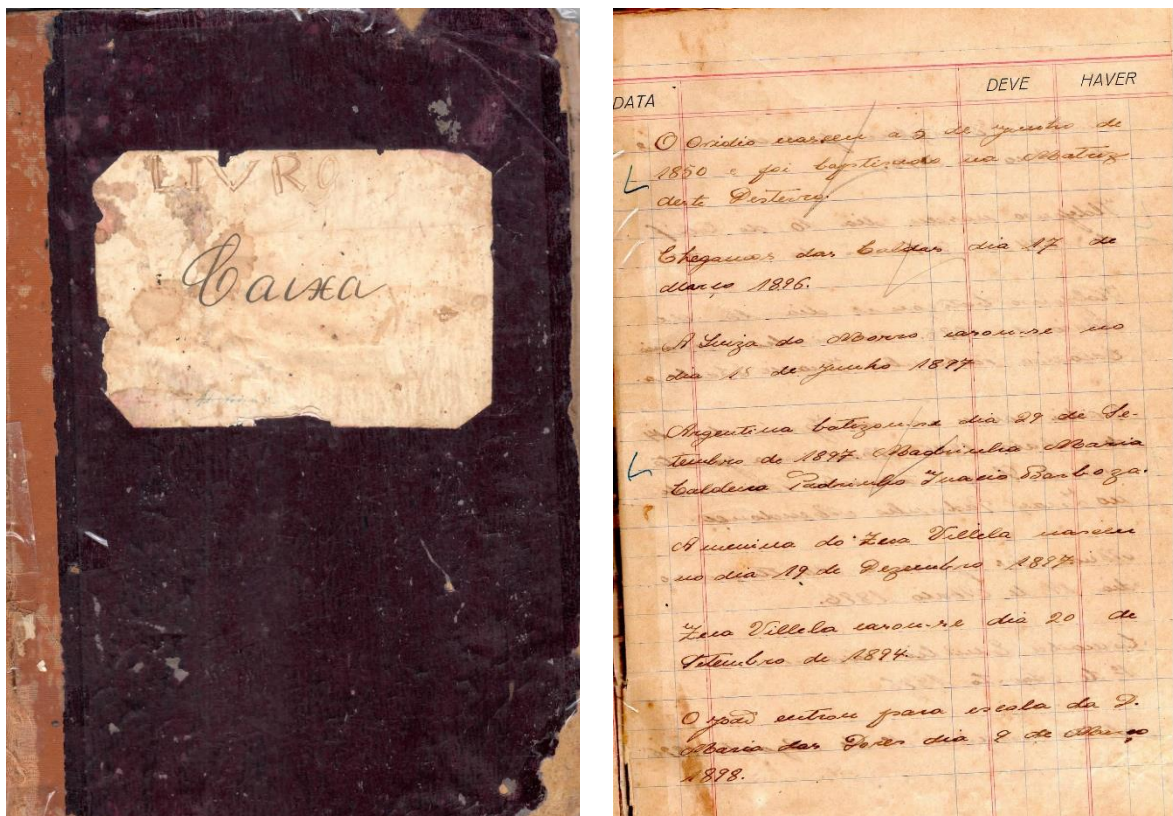 LIVRO
Caixa
DATA DEVE HAVER
O Ovidio nasceu a 5 de Junho de
1850 e foi baptisado na Matriz
deste Desterro.
Chegamos das Caldas dia 17 de
Março 1896.
A Luiza do Morro casou-se no
dia 18 de Junho 1897
Argentina batizou-se dia 29 de Se-
tembro de 1897 Madrinha Maria
Caldeira Padrinho Inacio Barboza.
A menina do Zeca Villela nasceu
no dia 19 de Dezembro 1897.
Zeca Villela casou-se dia 20 de
Setembro de 1894.
O João entrou para escola da D.
Maria das Dores dia 9 de Março
1898.